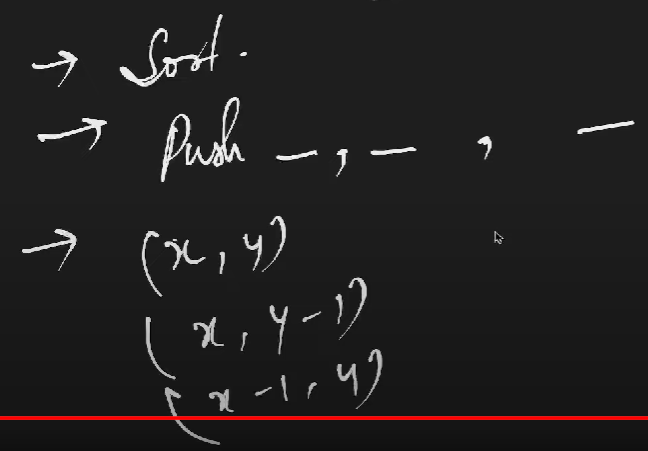 → Sort.
→ Push —, — , —
→ (x, y)
(x, y-1)
(x-1, y)